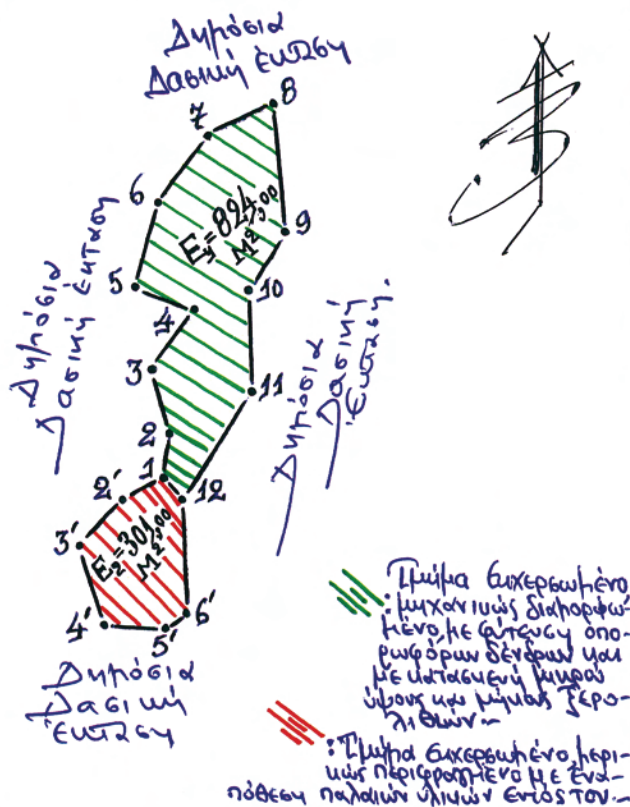 Δημόσια
Δασική έκταση
8
7
6
Ε₁=824,00
Μ²
9
Δημόσια
Δασική έκταση
5
10
4
Δημόσια
Δασική
Έκταση.
3
11
2
1
12
2'
3'
Ε₂=301,00
Μ²
4'
5'
6'
Δημόσια
Δασική
Έκταση
Τμήμα εκχερσωμένο
: μηχανικώς διαμορφω-
μένο, με φύτευση οπο-
ρωφόρων δένδρων και
με κατασκευή μικρού
ύψους και μήκους ξερο-
λιθιών.-
: Τμήμα εκχερσωμένο, μερι-
κώς περιφραγμένο με ενα-
πόθεση παλαιών υλικών εντός του.-